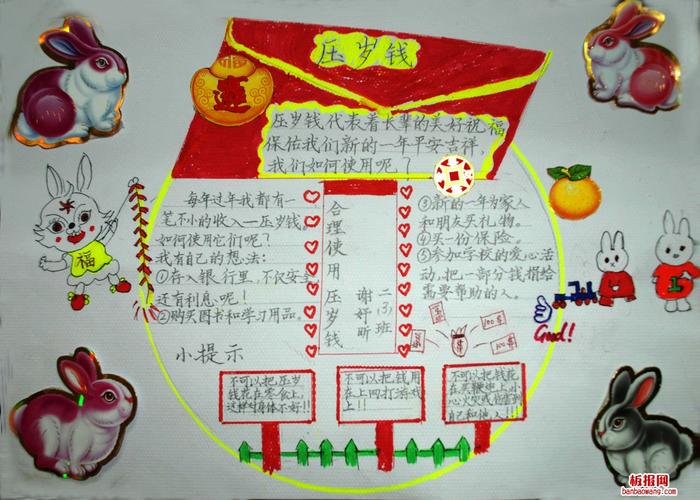 压岁钱
福
压岁钱代表着长辈的美好祝福
保佑我们新的一年平安吉祥,
我们如何使用呢?
每年过年我都有一
笔不小的收入—压岁钱。
如何使用它们呢?
我有自己的想法:
①存入银行里,不仅安全
还有利息呢!
②购买图书和学习用品。
合理使用压岁钱
二(3)班
谢妤昕
③新的一年为家人
和朋友买礼物。
④买一份保险。
⑤参加学校的爱心活
动,把一部分钱捐给
需要帮助的人。
福
Good!
100元
小提示
不可以把压岁
钱花在零食上,
这样对身体不好!!
不可以把钱用
在上网打游戏
上!!
不可以把钱花
在买鞭炮上,小
心火灾或伤害到
自己和他人!!
板报网
banbaowang.com